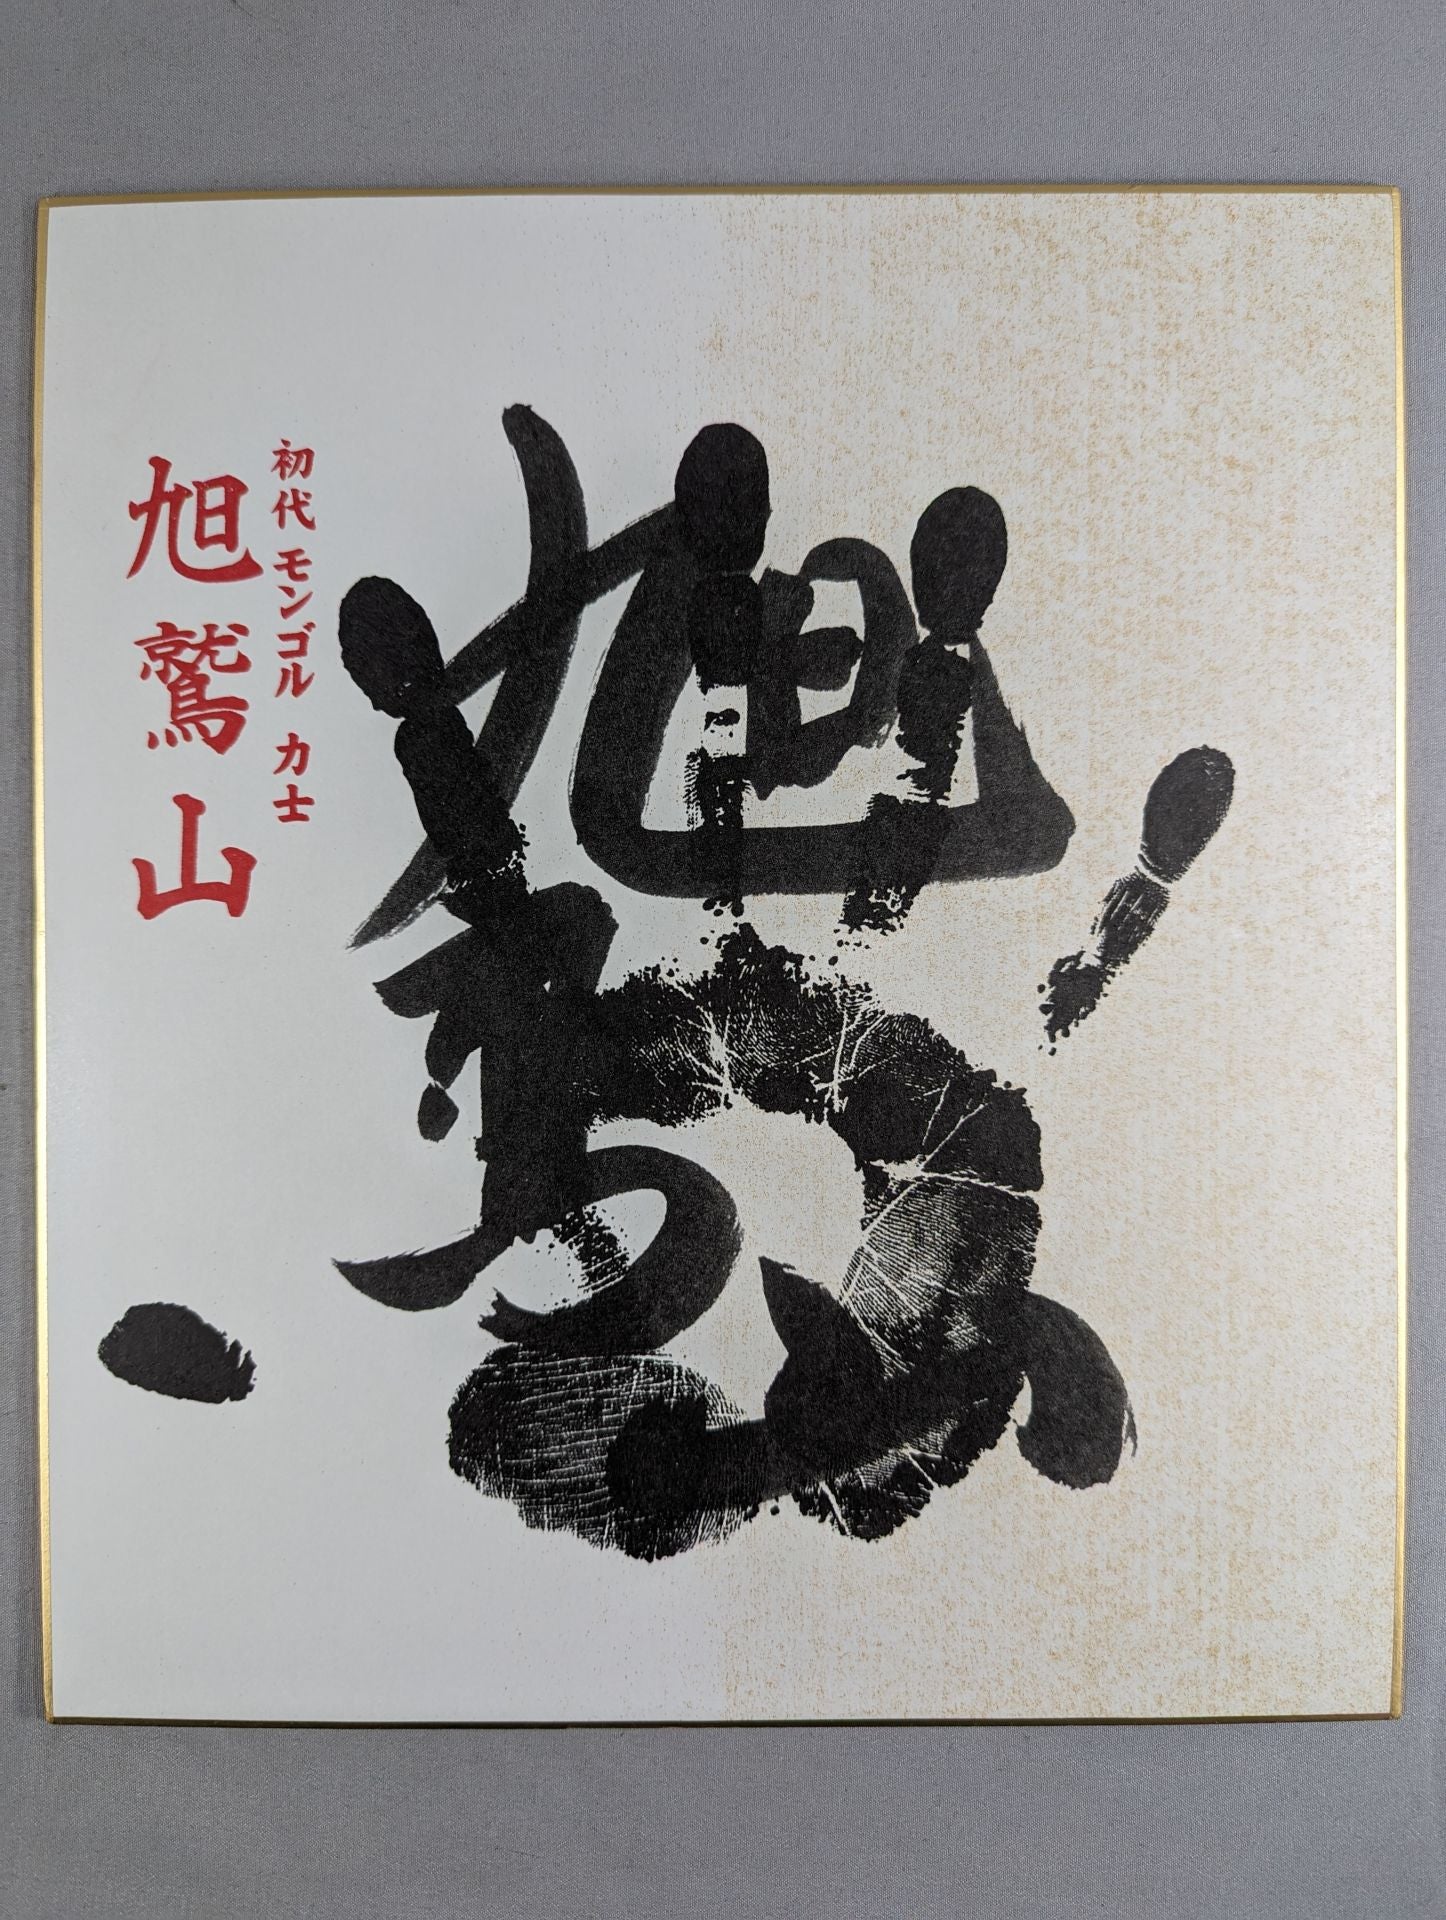 初代 モンゴル 力士
旭鷲山
旭鷲山